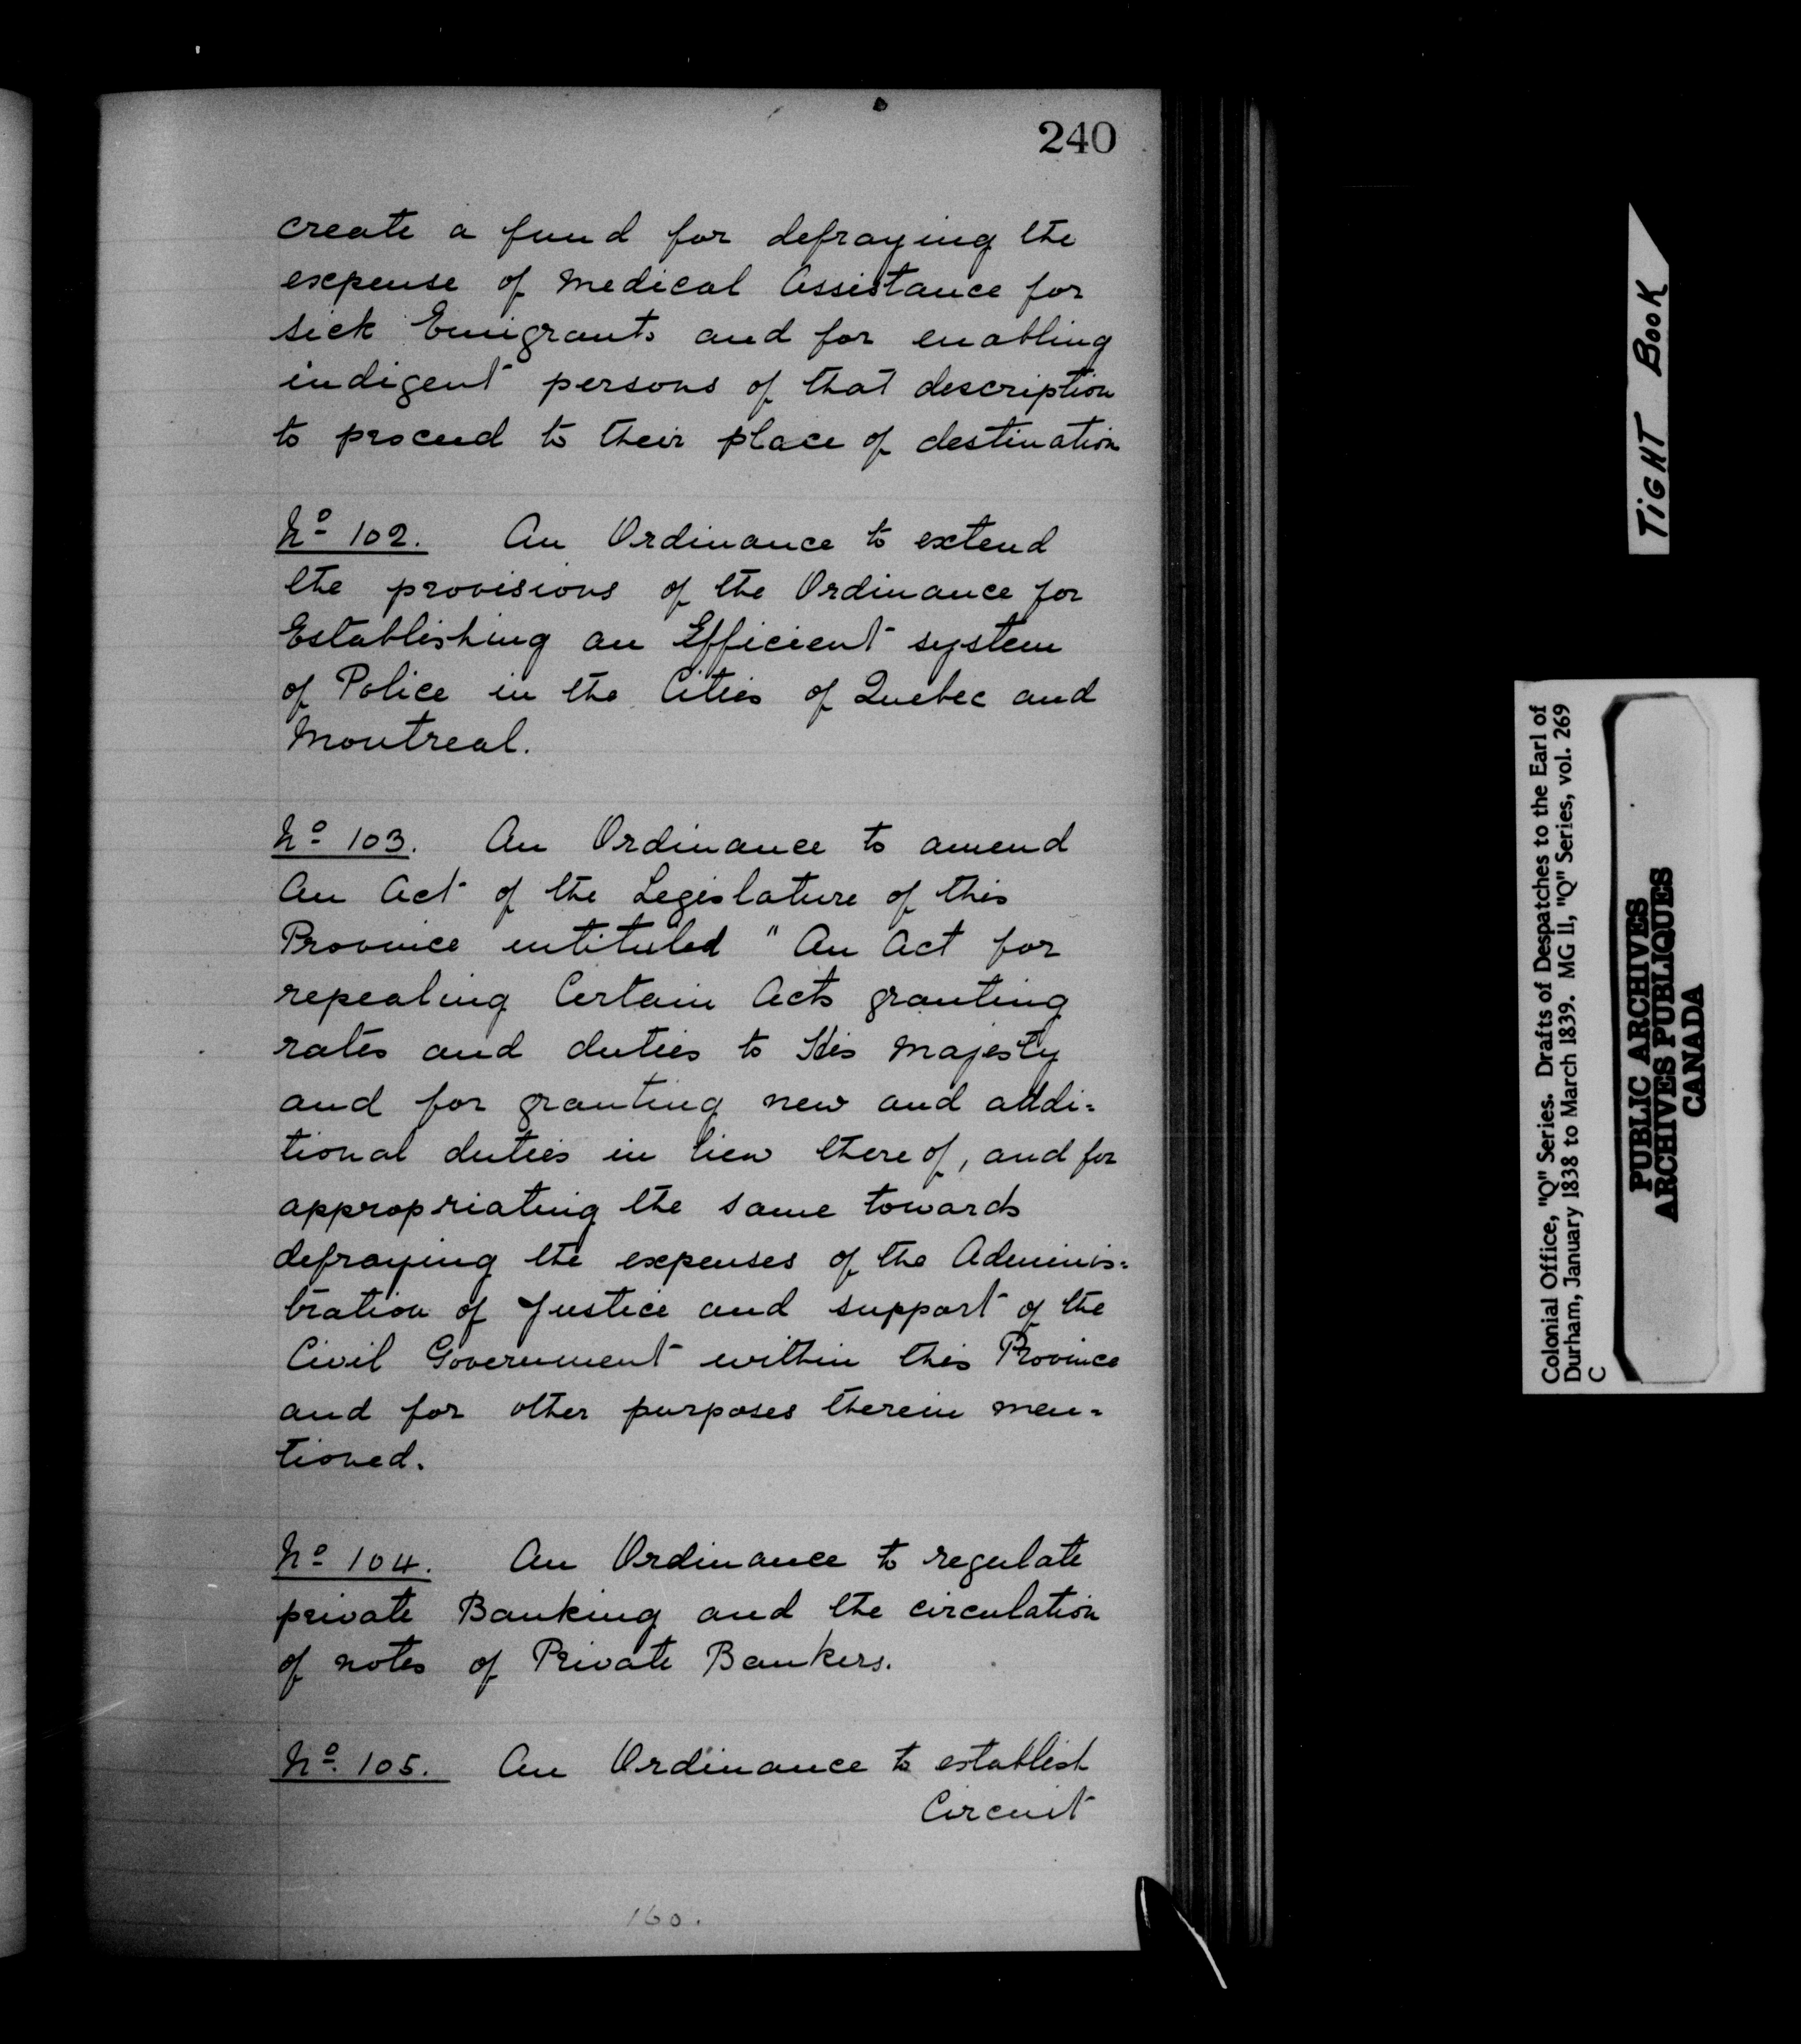 240
create a fund for defraying the
expense of Medical Assistance for
sick Emigrants and for enabling
indigent persons of that description
to proceed to their place of destination
No 102. An Ordinance to extend
the provisions of the Ordinance for
Establishing an Efficient system
of Police in the Cities of Quebec and
Montreal.
No 103. An Ordinance to amend
An Act of the Legislature of this
Province intituled "An Act for
repealing Certain Acts granting
rates and duties to His Majesty
and for granting new and addi=
tional duties in lieu thereof, and for
appropriating the same towards
defraying the expenses of the Adminis=
tration of Justice and support of the
Civil Government within this Province
and for other purposes therein men=
tioned.
No 104. An Ordinance to regulate
private Banking and the circulation
of notes of Private Bankers.
No. 105. An Ordinance to establish
Circuit
160.
TIGHT BOOK
Colonial Office, "Q" Series. Drafts of Despatches to the Earl of
Durham, January 1838 to March 1839. MG 11, "Q" Series, vol. 269
C
PUBLIC ARCHIVES
ARCHIVES PUBLIQUES
CANADA